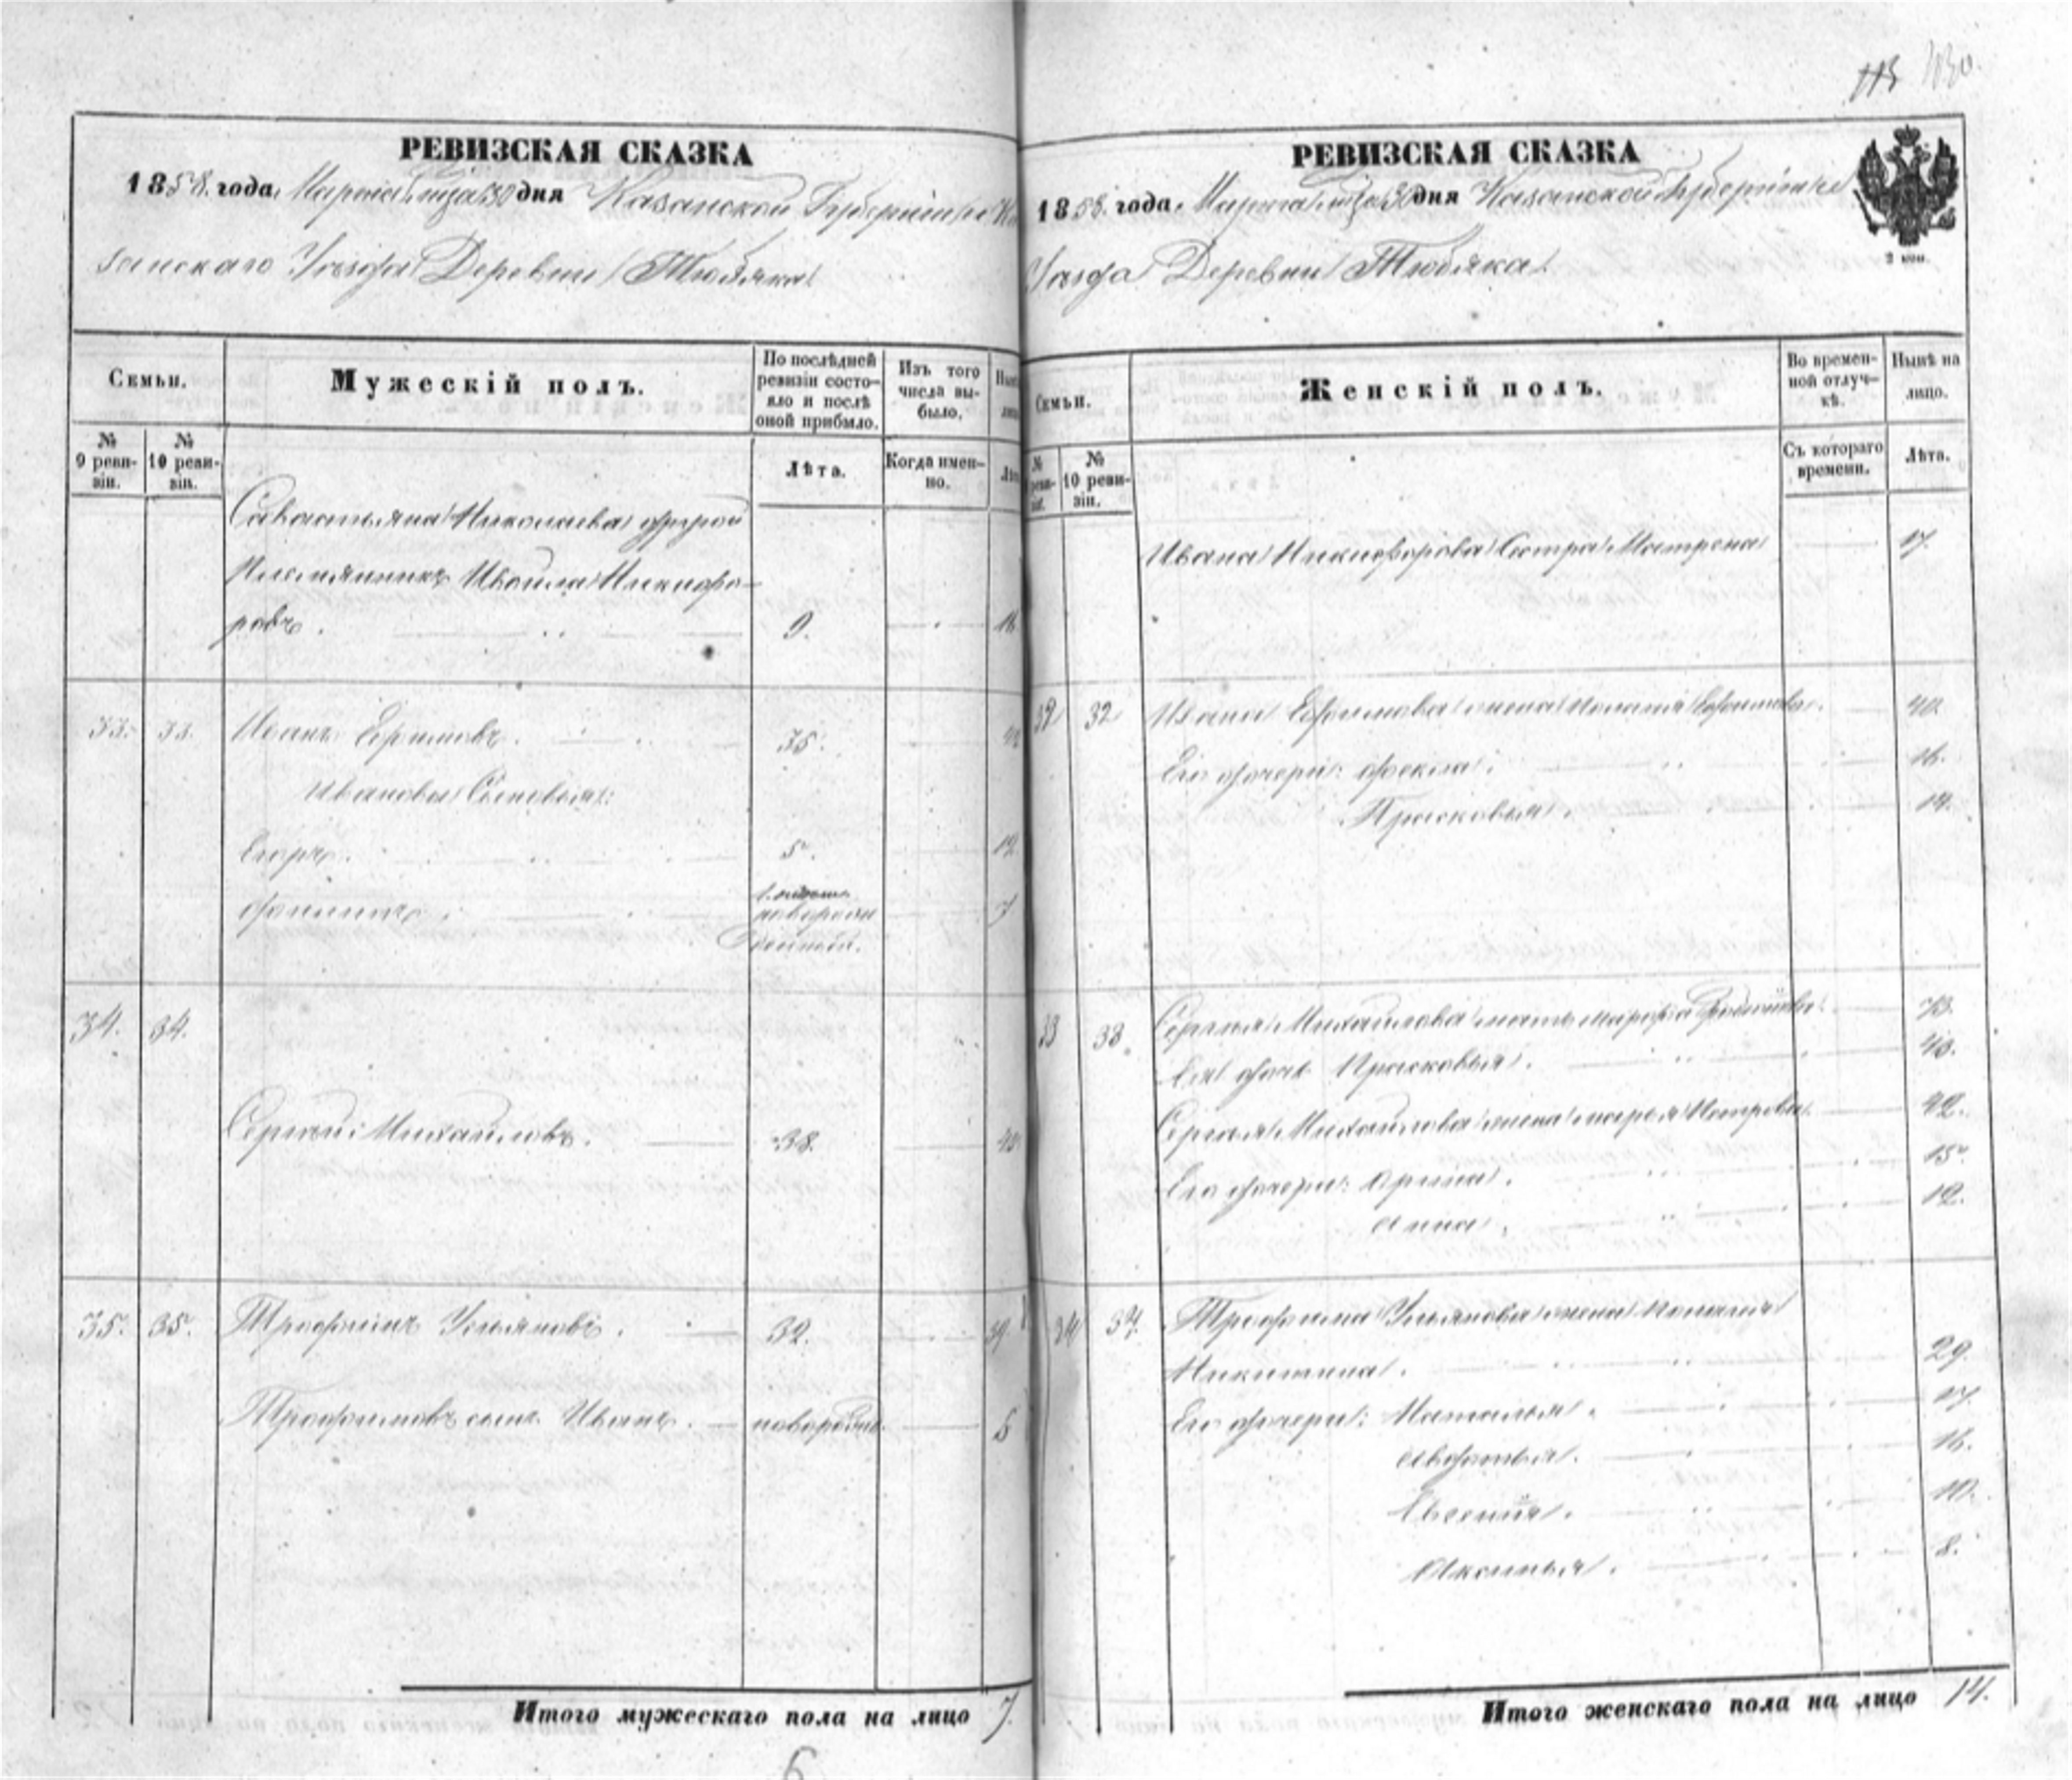 113 130.
РЕВИЗСКАЯ СКАЗКА
1858. года, Марта м-ца 30 дня Казанской Губернии Ка
занскаго Уѣзда Деревни Тюбяка
Семьи.
Мужескій полъ.
По послѣдней ревизіи состо-
яло и послѣ
оной прибыло.
Изъ того
числа вы-
было.
№
9 реви-
зіи.
№
10 реви-
зіи.
Лѣта.
Когда имен-
но.
Савастьяна Николаева другой
Племянникъ Ивана Никифо-
ровъ. 9. 16
33. 33. Иванъ Ефимовъ. 35. 42
Ивановы Сыновья:
Егоръ. 5. 12
Филипъ. новорож
денный. 7
34. 34.
Сергей Михайловъ. 38. 45
35. 35. Трофимъ Ульяновъ. 32. 39
Трофимовъ сынъ Иванъ. новорожд. 5
Итого мужескаго пола на лицо 7.
6
РЕВИЗСКАЯ СКАЗКА
1858. года, Марта м-ца 30 дня Казанской Губернии
Уѣзда Деревни Тюбяка.
2 коп.
Семьи.
Женскій полъ.
Во времен-
ной отлуч-
кѣ.
Нынѣ на
лицо.
№
реви-
зіи.
№
10 реви-
зіи.
Съ котораго
времени.
Лѣта.
Ивана Никифорова Сестра Матрена 17.
32 32 Ивана Ефимова жена Пелагея Ефимова. 40.
Его дочери: Фекла. 16.
Прасковья. 14.
33 33. Сергея Михайлова мать Марфа 73.
Ея дочь Прасковья. 43.
Сергея Михайлова жена Марья Петрова. 42.
Его дочери: Арина. 15.
Анна. 12.
34 34. Трофима Ульянова жена Пелагея
Никитина. 29.
Его дочери: Наталья. 17.
Авдотья. 16.
Евгенія. 10.
Аксинья. 8.
Итого женскаго пола на лицо 14.